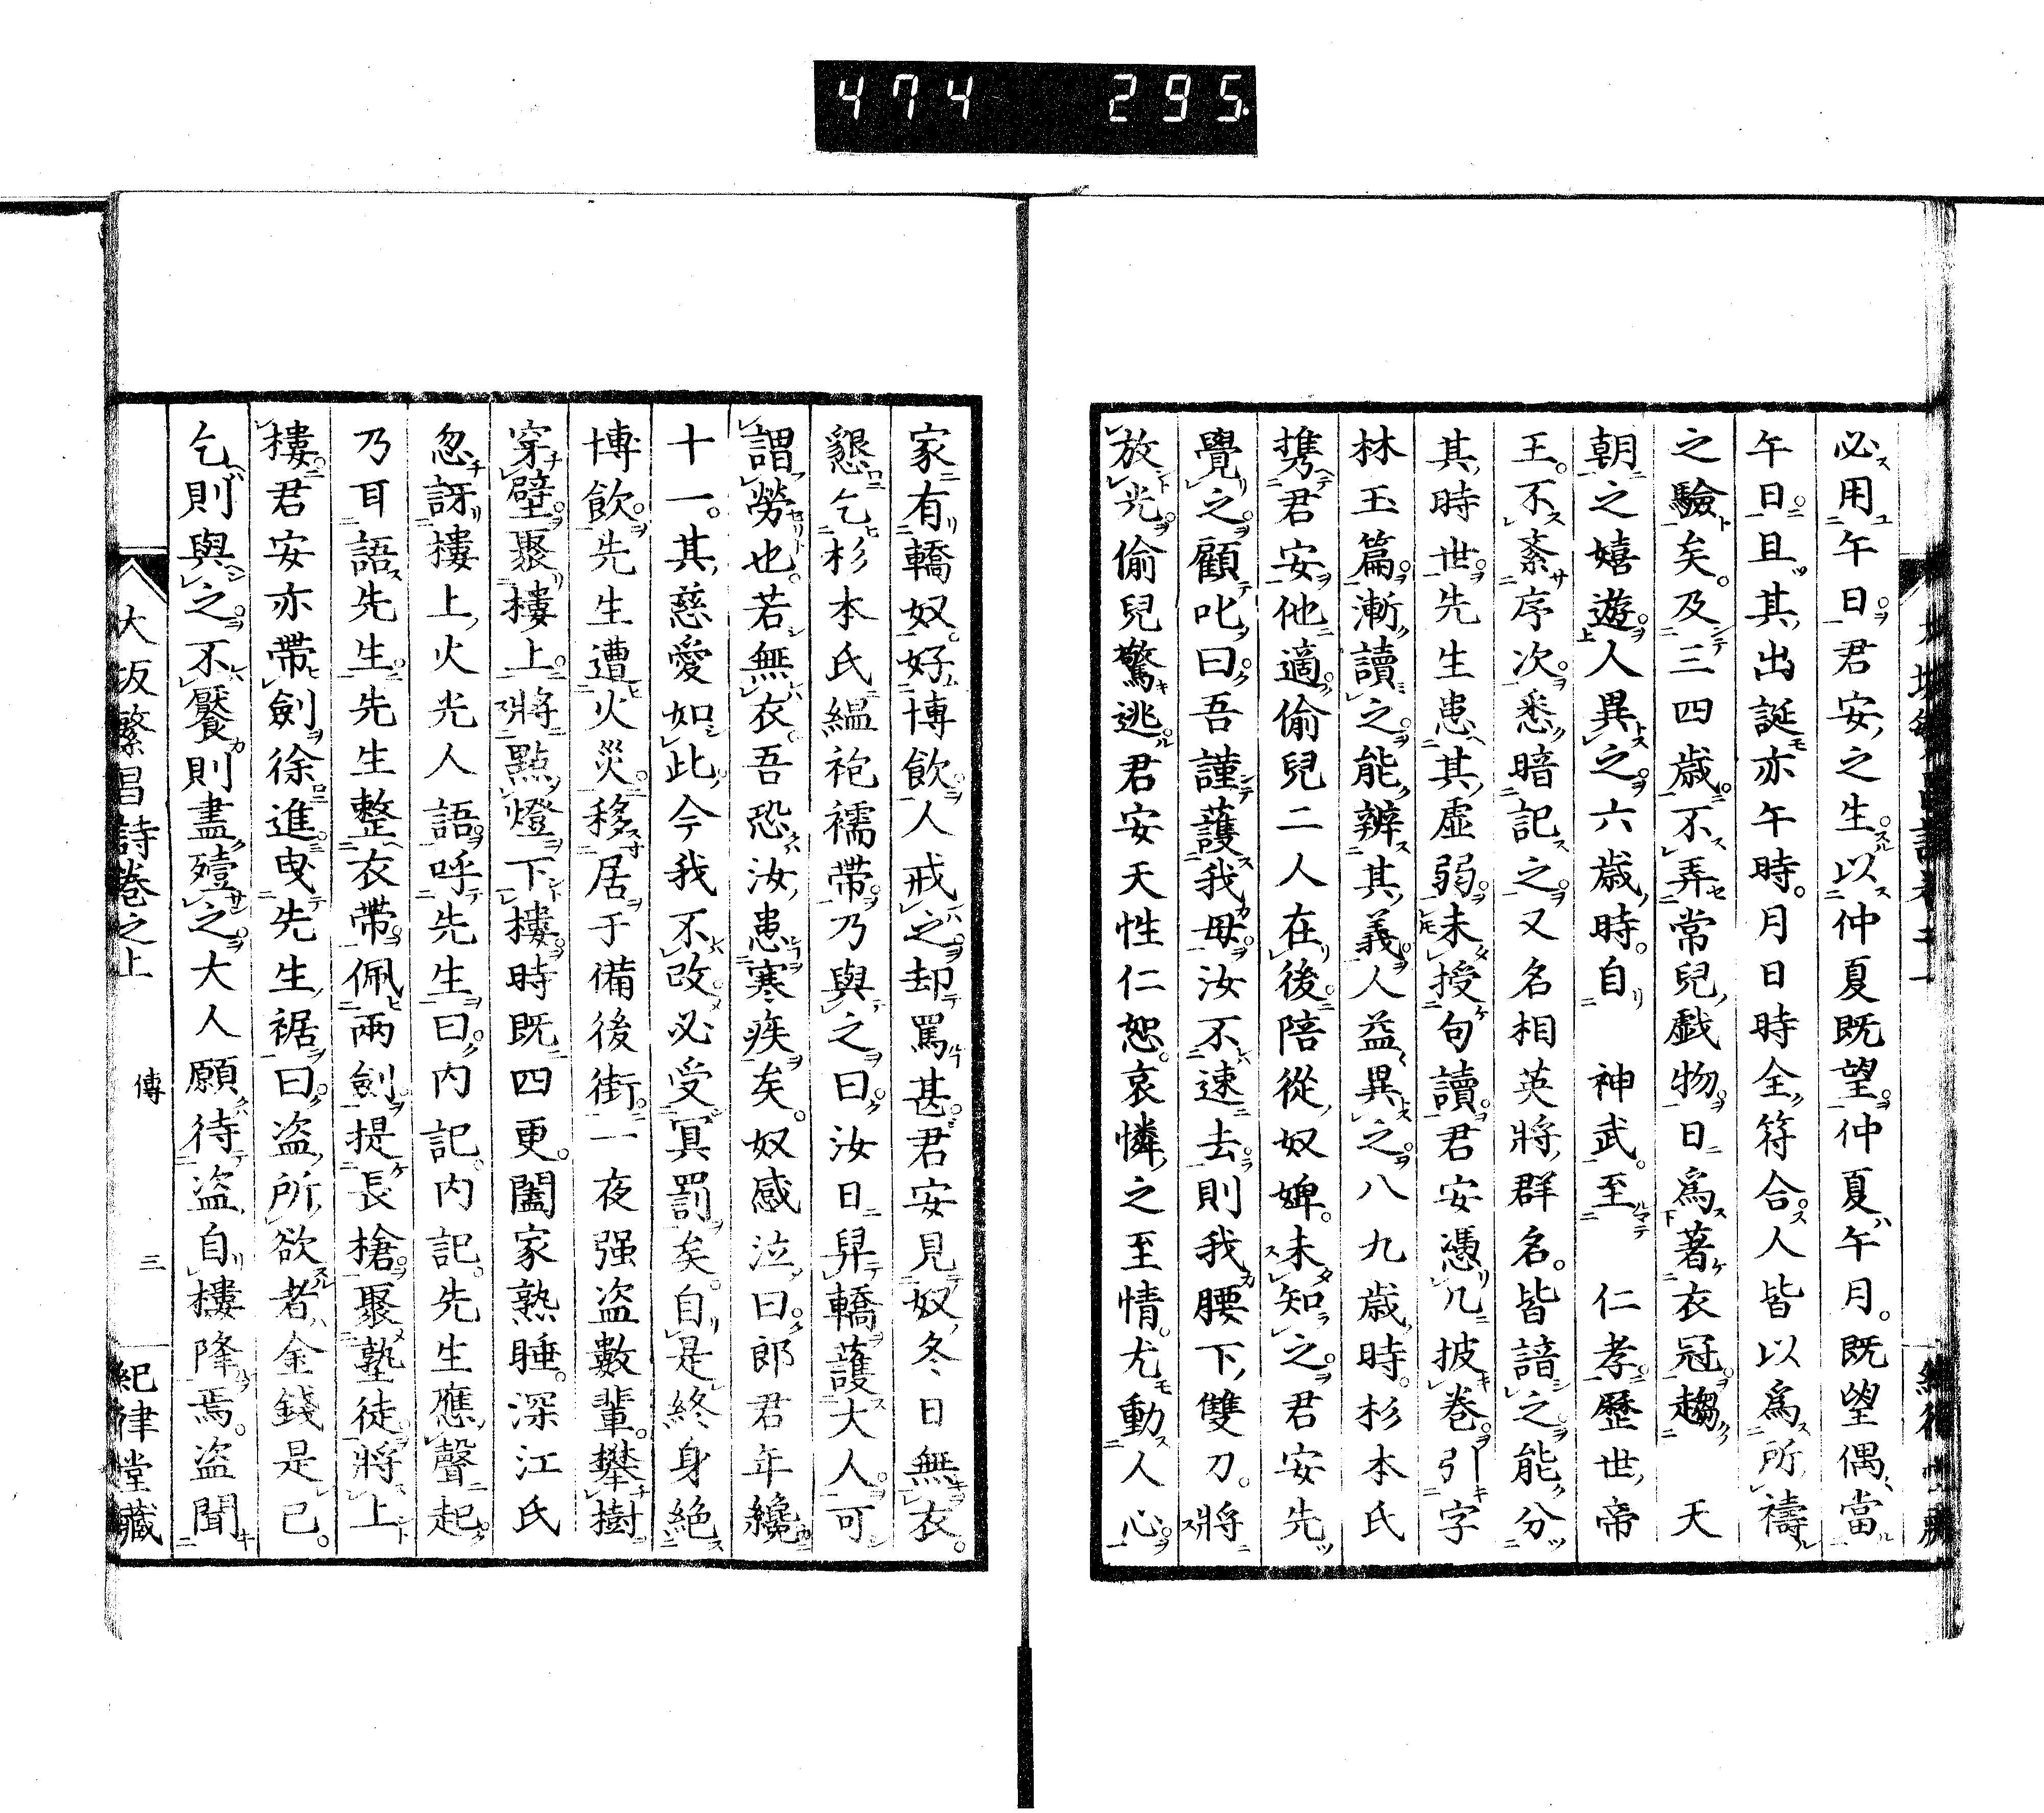 474 295
必用午日君安之生以仲夏既望仲夏午月。既望偶當
午日且其出誕亦午時。月日時全符合人皆以爲所禱
之驗矣。及三四歳不弄常兒戯物日爲著衣冠趨 天
朝之嬉遊人異之六歳時。自 神武。至 仁孝歷世帝
王。不紊序次悉暗記之又名相英將群名。皆諳之能分
其時世先生患其虛弱未授句讀君安憑几披巻引字
林玉篇漸讀之能辨其義人益異之八九歳時。杉本氏
携君安他適偷兒二人在後陪從奴婢。未知之君安先
覺之顧叱曰吾謹護我母汝不速去則我腰下雙刀。將
放光偷兒驚逃君安天性仁恕。哀憐之至情。尤動人心
家有轎奴。好博飲人戒之却罵甚君安見奴冬日無衣。
懇乞杉本氏縕袍襦帶乃與之曰汝日舁轎護大人可
謂勞也。若無衣。吾恐汝患寒疾矣。奴感泣曰郎君年纔
十一。其慈愛如此今我不改必受冥罰矣。自是終身絶
博飲先生遭火災移居于備後街一夜强盗數輩。攀樹
穿壁聚樓上將點燈下樓時既四更。闔家熟睡。深江氏
忽訝樓上火光人語呼先生曰内記。内記。先生應聲起
乃耳語先生先生整衣帶佩兩劍提長槍聚塾徒將上
樓君安亦帶劍徐進曳先生裾曰盗所欲者金錢是已。
乞則與之不饜則盡殪之大人願待盗自樓降焉。盗聞
大坂繁昌詩巻之上 傳 三 紀律堂藏